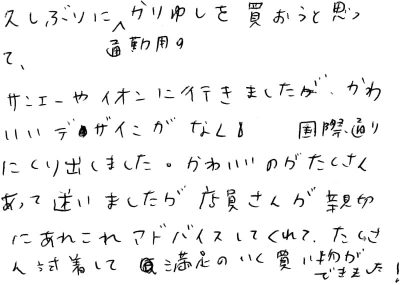 久しぶりに通勤用のかりゆしを買おうと思っ
て、
サンエーやイオンに行きましたが、かわ
いいデザインがなく! 国際通り
にくり出しました。かわいいのがたくさん
あって迷いましたが店員さんが親切
にあれこれアドバイスしてくれて、たくさ
ん試着して満足のいく買い物ができました!